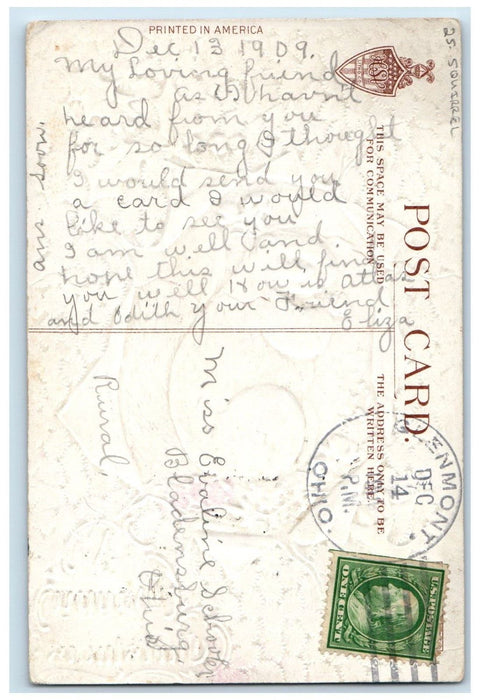 PRINTED IN AMERICA
Dec 13 1909.
My Loving friend
as I havn't
heard from you
for so long I thought
I would send you
a card I would
like to see you
I am well and.
hope this will find
you well How is
and Odith your Friend
Eliza
ans soon
25 SQUIRREL
POST CARD.
THIS SPACE MAY BE USED
FOR COMMUNICATION
THE ADDRESS ONLY TO BE
WRITTEN HERE.
Miss Evaline Schooler
Bladensburg
Ohio
Rural
GLENMONT.
DEC
14
P.M.
OHIO
U.S. POSTAGE
ONE CENT